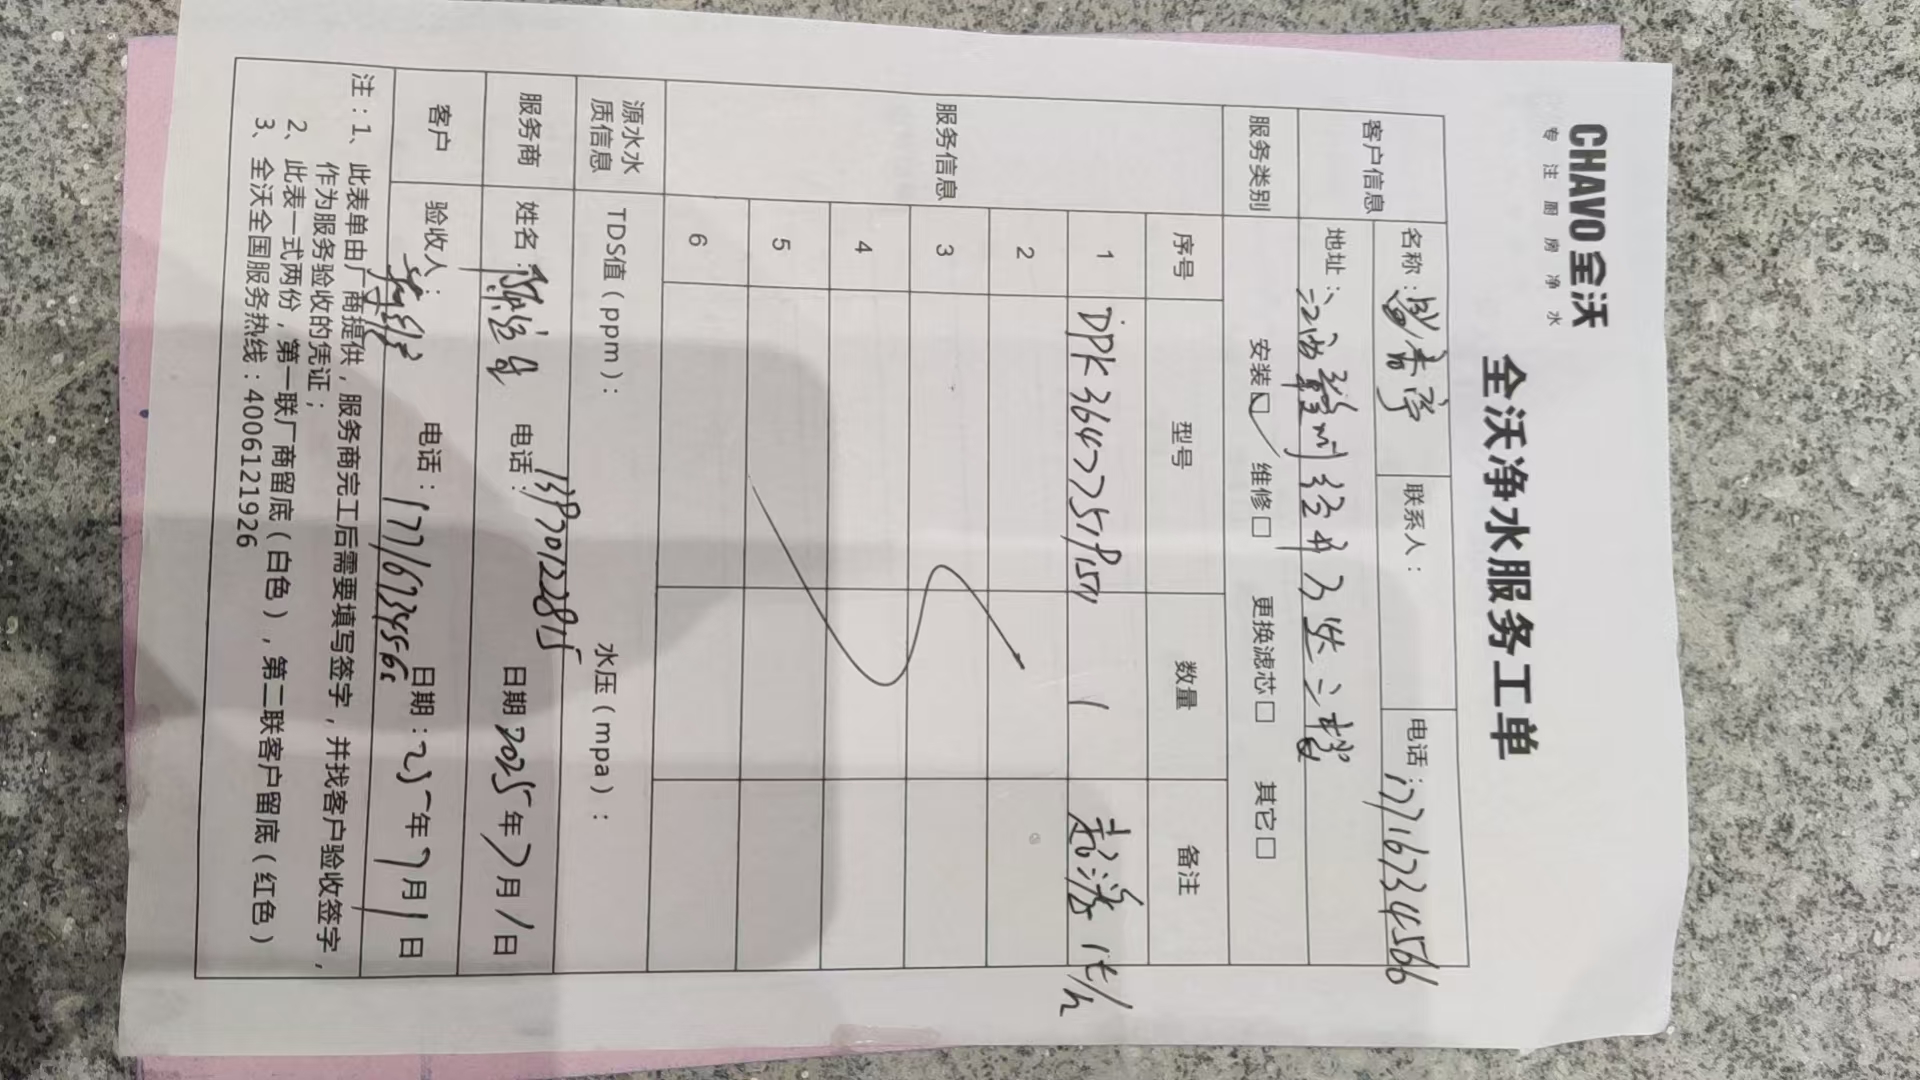 CHAVO 全沃
专注厨房净水
全沃净水服务工单
客户信息 名称： 联系人： 电话：17716234566
地址：
服务类别 安装☑ 维修□ 更换滤芯□ 其它□
服务信息 序号 型号 数量 备注
1 1
2
3
4
5
6
源水水质信息 TDS值（ppm）： 水压（mpa）：
服务商 姓名： 电话：13970122815 日期2025年7月1日
客户 验收人： 电话：17716234566 日期：25年7月1日
注：1、此表单由厂商提供，服务商完工后需要填写签字，并找客户验收签字，
作为服务验收的凭证；
2、此表一式两份，第一联厂商留底（白色），第二联客户留底（红色）
3、全沃全国服务热线：4006121926